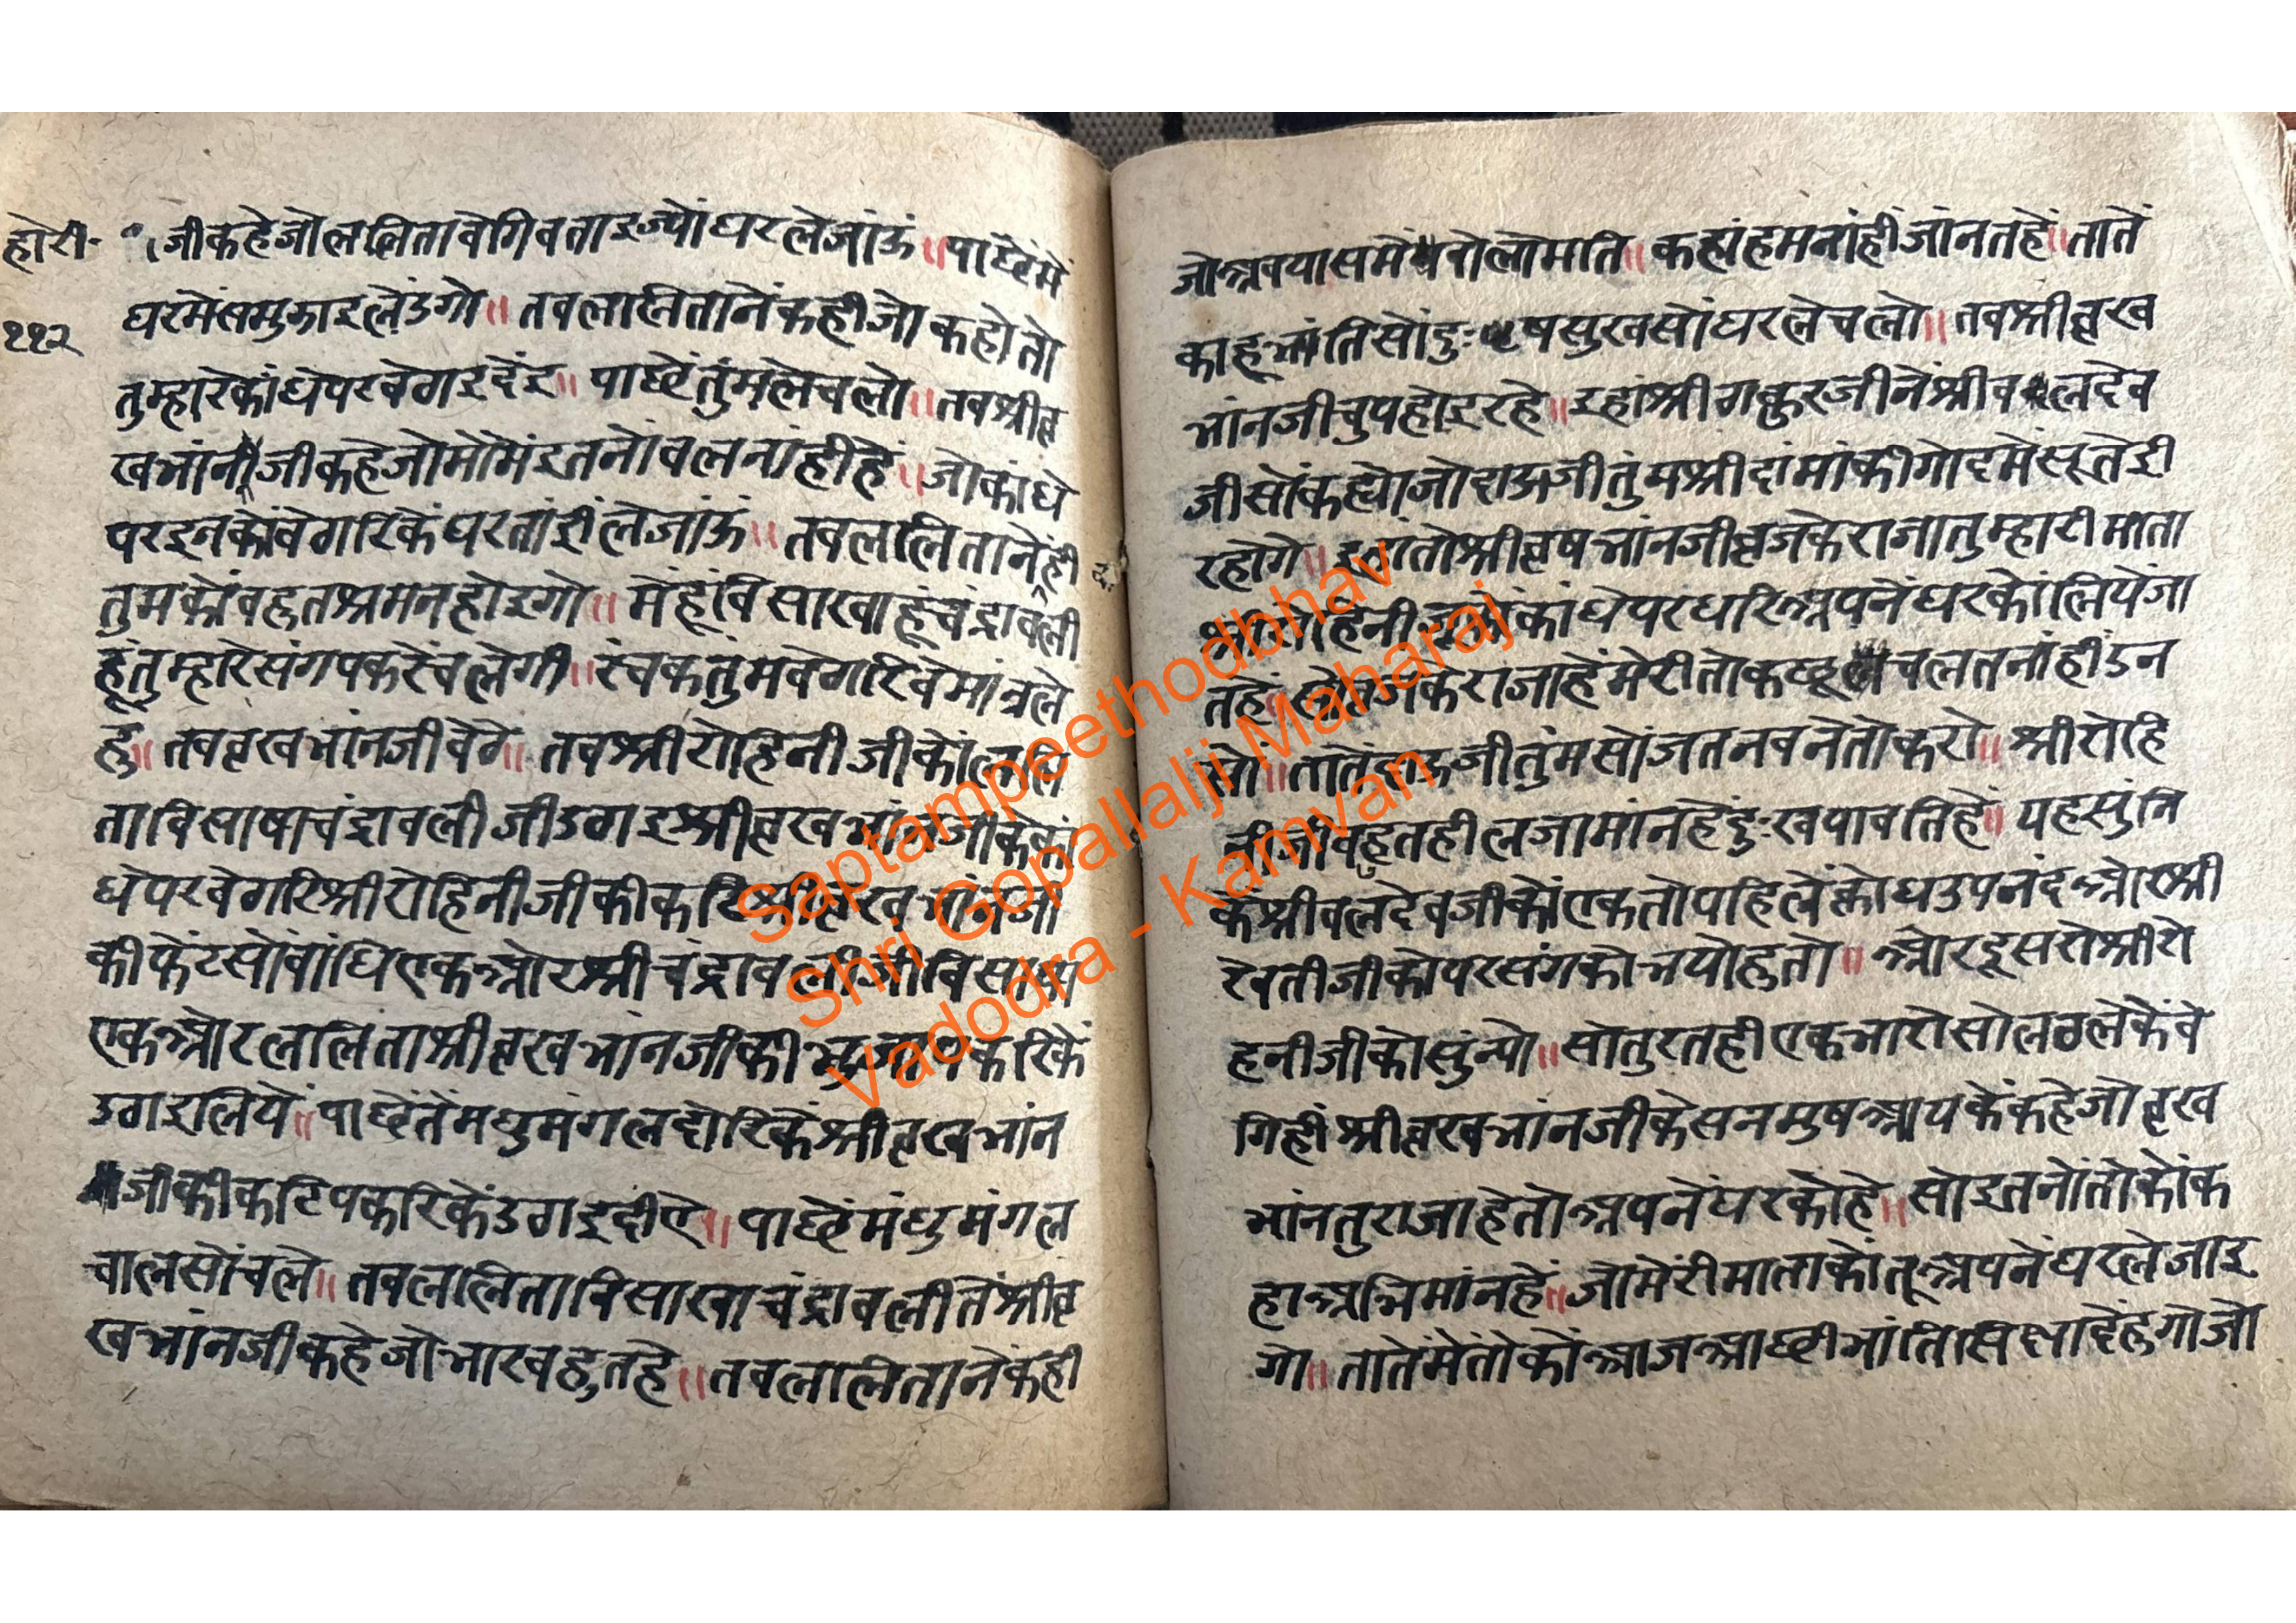 होरी॰
११२
जीकहेजोललितावेगिवताइज्योंघरलेजांऊं॥पाछेंमें
घरमेंसमुझाइलेंउगो॥तवललितानेंकहीजोकहोतो
तुम्हारेकांधेपरवेगइदेंइ॥पाछेंतुंमलेचलो॥तवश्रीवृ
खभांनजीकहेजोमोमेंइतनोंवलनांहीहें॥जोकांधे
परइनकोंवेगारिकेंघरतांईलेजांऊ॥तवललितानेंही
क॰
तुमकोंवहुतश्रमनहोइगो॥मेंहूंविसाखाहूंचंद्रावली
हूंतुम्हारेसंगपकरेंचलेगी॥
हु॥तववृखभांनजीवेठे॥तवश्रीरोहिनीजीकोंललि
ताविसाषाचंद्रावलीजीउठाइश्रीवृखभांनजीकेकां
धेपरवेठारिश्रीरोहिनीजीकीकटिश्रीवृखभांनजी
कीफेंटसोंवांधिएकओरश्रीचंद्रावलीजीविसाखा
एकओरललिताश्रीवृखभांनजीकीभुजापकरिकें
उठाइलिये॥पाछेंतेंमधुमंगलदोरिकेंश्रीवृखभांन
जीकीकटिपकरिकेंउठाइदीए॥पाछेंमंधुमंगल
चालसोंचले॥तवललिताविसाखाचंद्रावलीतेंश्रीवृ
खभांनजीकहेजोभारवहुतहे॥तवललितानेंकंही
जोअवयासमेंवोलोमति॥कहांहमनांहींजांनतहें॥तातें
काहूभांतिसोंदुःषसुखसोंघरलेचलो॥तवश्रीवृख
भांनजीचुपहोइरहे॥इहांश्रीठाकुरजीनेंश्रीवलदेव
जीसोंकह्योजोदाऊजीतुंमश्रीदांमांकीगोदमेंसूतेई
रहोगे॥इहांतोश्रीवृषभांनजीवृजकेराजातुम्हारीमाता
श्रीरोहिनीजूकोंकांधेपरधारिअपनेंघरकोंलियेंजा
तहें॥सोवृजकेराजाहेंमेरीतोकछूचलतनांहींउन
सों॥तातेंदाऊजीतुंमसोंजतनवनेतोकरो॥श्रीरोहि
नीजीवहुतहीलजामांनहेंदुःखपावतिहें॥यहसुंनि
केंश्रीवलदेवजीकोंएकतोपहिलेंक्रोधउपनंदओरश्री
रेवतीजीकोपरसंगकोभयोहुतो॥ओरदूसरोश्रीरो
हनीजीकोसुंन्यो॥सोतुरतहीएकभारोसोलठलेकेंवे
गिहींश्रीवृखभांनजीकेसनमुषआयकेंकहेजोवृख
भांनतुराजाहेतोअपनेंघरकोहे॥सोइतनोंतोकोंक
हाअभिमांनहें॥जोमेरीमाताकोंतूअपनेंघरलेजाइ
गो॥तातेंमेंतोकोंआजआछीभांतिसिक्षादेंहुगोजो
Saptampeethodbhav
Shri Gopallalji Maharaj
Vadodra - Kamvan